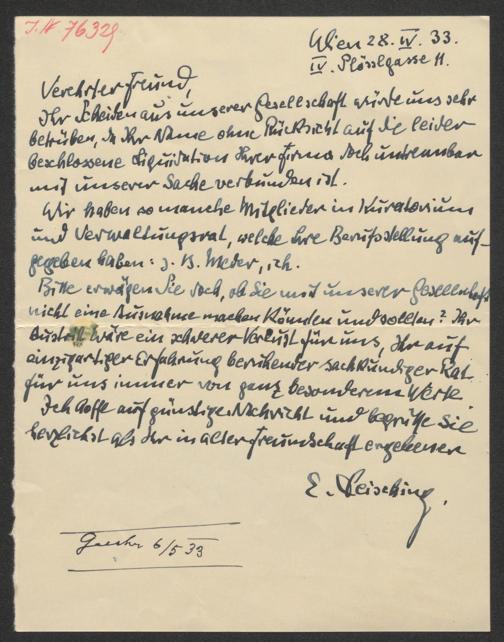 I.N 76329
Wien 28. IV. 33.
IV. Plösslgasse 11.
Verehrter Freund,
Ihr Scheiden aus unserer Gesellschaft würde uns sehr
betrüben, da Ihr Name ohne Rücksicht auf die leider
beschlossene Liquidation Ihrer Firma doch untrennbar
mit unserer Sache verbunden ist.
Wir haben so manche Mitglieder in Kuratorium
und Verwaltungsrat, welche ihre Berufsstellung auf-
gegeben haben: z. B. Meder, ich.
Bitte erwägen Sie doch, ob Sie mit unserer Gesellschaft
nicht eine Ausnahme machen könnten und sollten? Ihr
Austritt wäre ein schwerer Verlust für uns, Ihr auf
einzigartiger Erfahrung beruhender sachkundiger Rat
für uns immer von ganz besonderem Werte
Ich hoffe auf günstige Nachricht und begrüße Sie
herzlichst als Ihr in alter Freundschaft ergebener
E. Leisching.
6/5 33